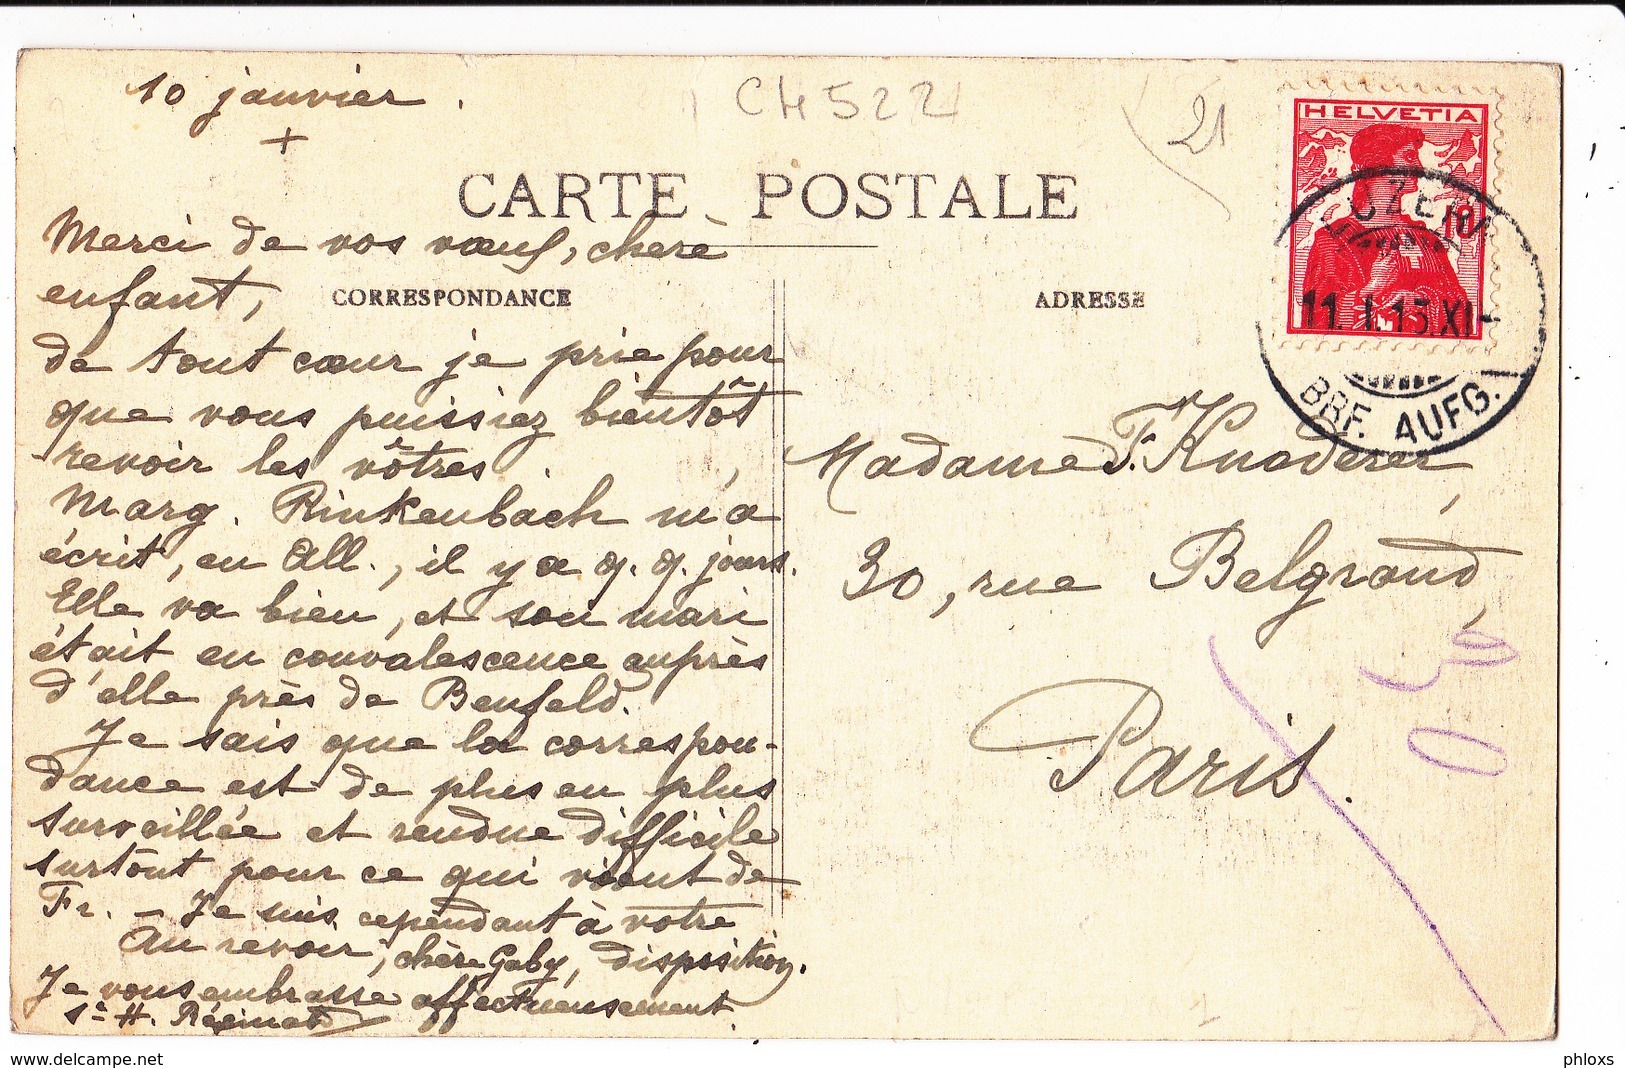 10 janvier.
+
CH 522
21
HELVETIA
10
LUZERN
11. I. 15. XI-
BRF. AUFG.
CARTE POSTALE
CORRESPONDANCE
ADRESSE
Merci de vos vœux, chère
enfant,
de tout cœur je prie pour
que vous puissiez bientôt
revoir les vôtres.
Marg. Rinkenbach m'a
écrit, en All., il y a q. q. jours.
Elle va bien, et son mari
était en convalescence auprès
d'elle près de Benfeld.
Je sais que la correspon-
dance est de plus en plus
surveillée et rendue difficile
surtout pour ce qui vient de
Fr. – Je suis cependant à votre
disposition.
Au revoir, chère Gaby,
Je vous embrasse affectueusement.
Sr H.
Madame F. Knoderer,
30, rue Belgrand,
Paris.
phloxs